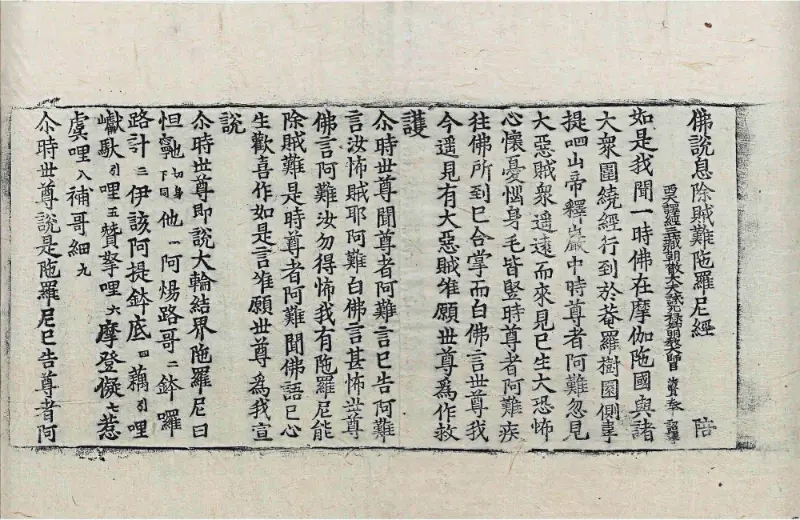 佛說息除賊難陁羅尼經 陪
譯經三藏朝散大夫試光祿卿明教大師臣法賢奉 詔譯
如是我聞一時佛在摩伽陁國與諸
大衆圍繞經行到於菴羅樹園側韋
提呬山帝釋巖中時尊者阿難忽見
大惡賊衆遥遠而來見已生大恐怖
心懷憂惱身毛皆竪時尊者阿難疾
往佛所到已合掌而白佛言世尊我
今遥見有大惡賊唯願世尊為作救
護
尒時世尊聞尊者阿難言已告阿難
言汝怖賊耶阿難白佛言甚怖世尊
佛言阿難汝勿得怖我有陁羅尼能
除賊難是時尊者阿難聞佛語已心
生歡喜作如是言唯願世尊為我宣
說
尒時世尊即說大輪結界陁羅尼曰
怛 切身下同 他一阿煬路哥二鉢囉
路計三伊該阿提鉢底四藕引哩
巘馱引哩五贊拏哩六摩登儗七惹
虞哩八補哥細九
尒時世尊說是陁羅尼已告尊者阿